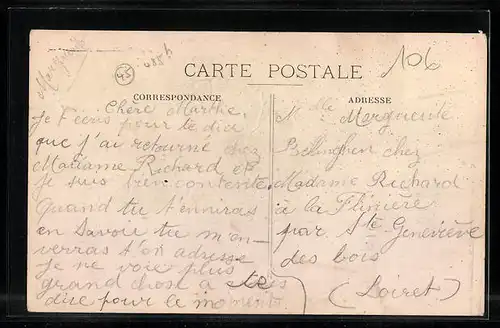 Marguerite
45
106
CARTE POSTALE
CORRESPONDANCE
Chère Marthe,
Je t'écris pour te dire
que j'ai retourné chez
Mariame Richard et
je suis bien contente
Quand tu t'enniras
en Savoie tu m'en-
verras t'on adresse
Je ne voie plus
grand chose a te
dire pour le moment
ADRESSE
Mlle Merguerite
Bélinghen chez
Madame Richard
à la Flinière
par Ste Geneviève
des bois
(Loiret)